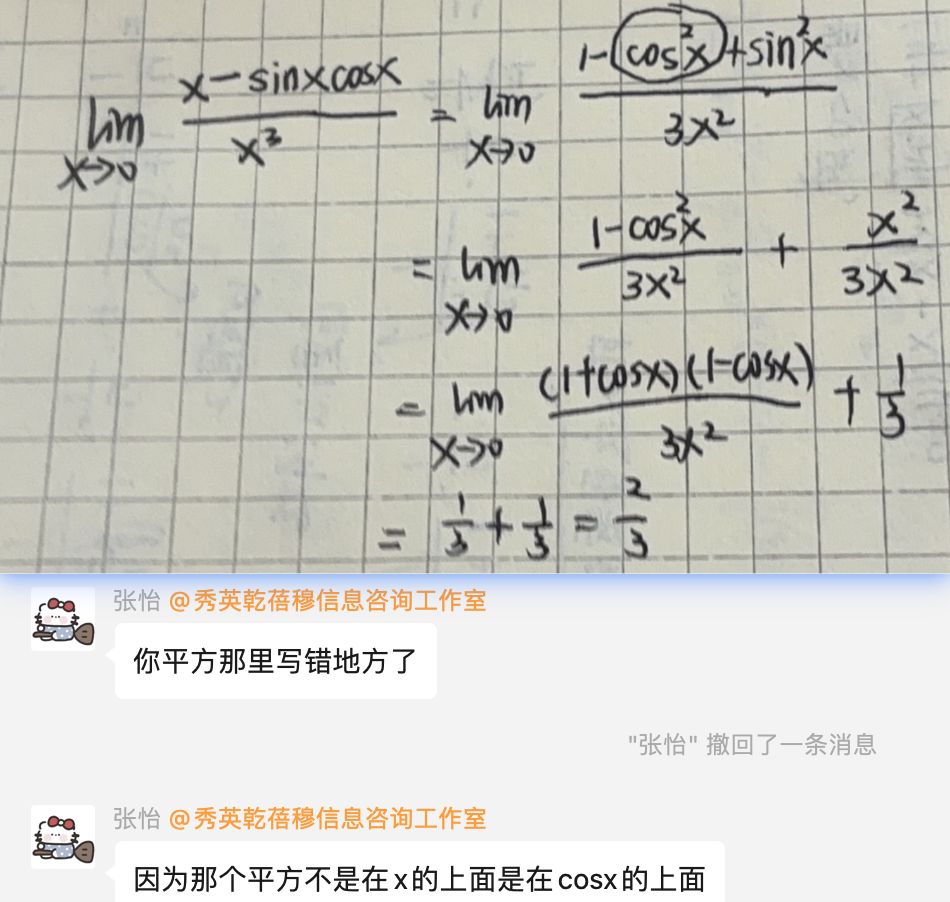 lim x→0 (x-sinxcosx)/x³ = lim x→0 (1-cos²x+sin²x)/3x²
= lim x→0 (1-cos²x)/3x² + x²/3x²
= lim x→0 (1+cosx)(1-cosx)/3x² + 1/3
= 1/3 + 1/3 = 2/3
张怡 @秀英乾蓓穆信息咨询工作室
你平方那里写错地方了
"张怡" 撤回了一条消息
张怡 @秀英乾蓓穆信息咨询工作室
因为那个平方不是在x的上面是在cosx的上面